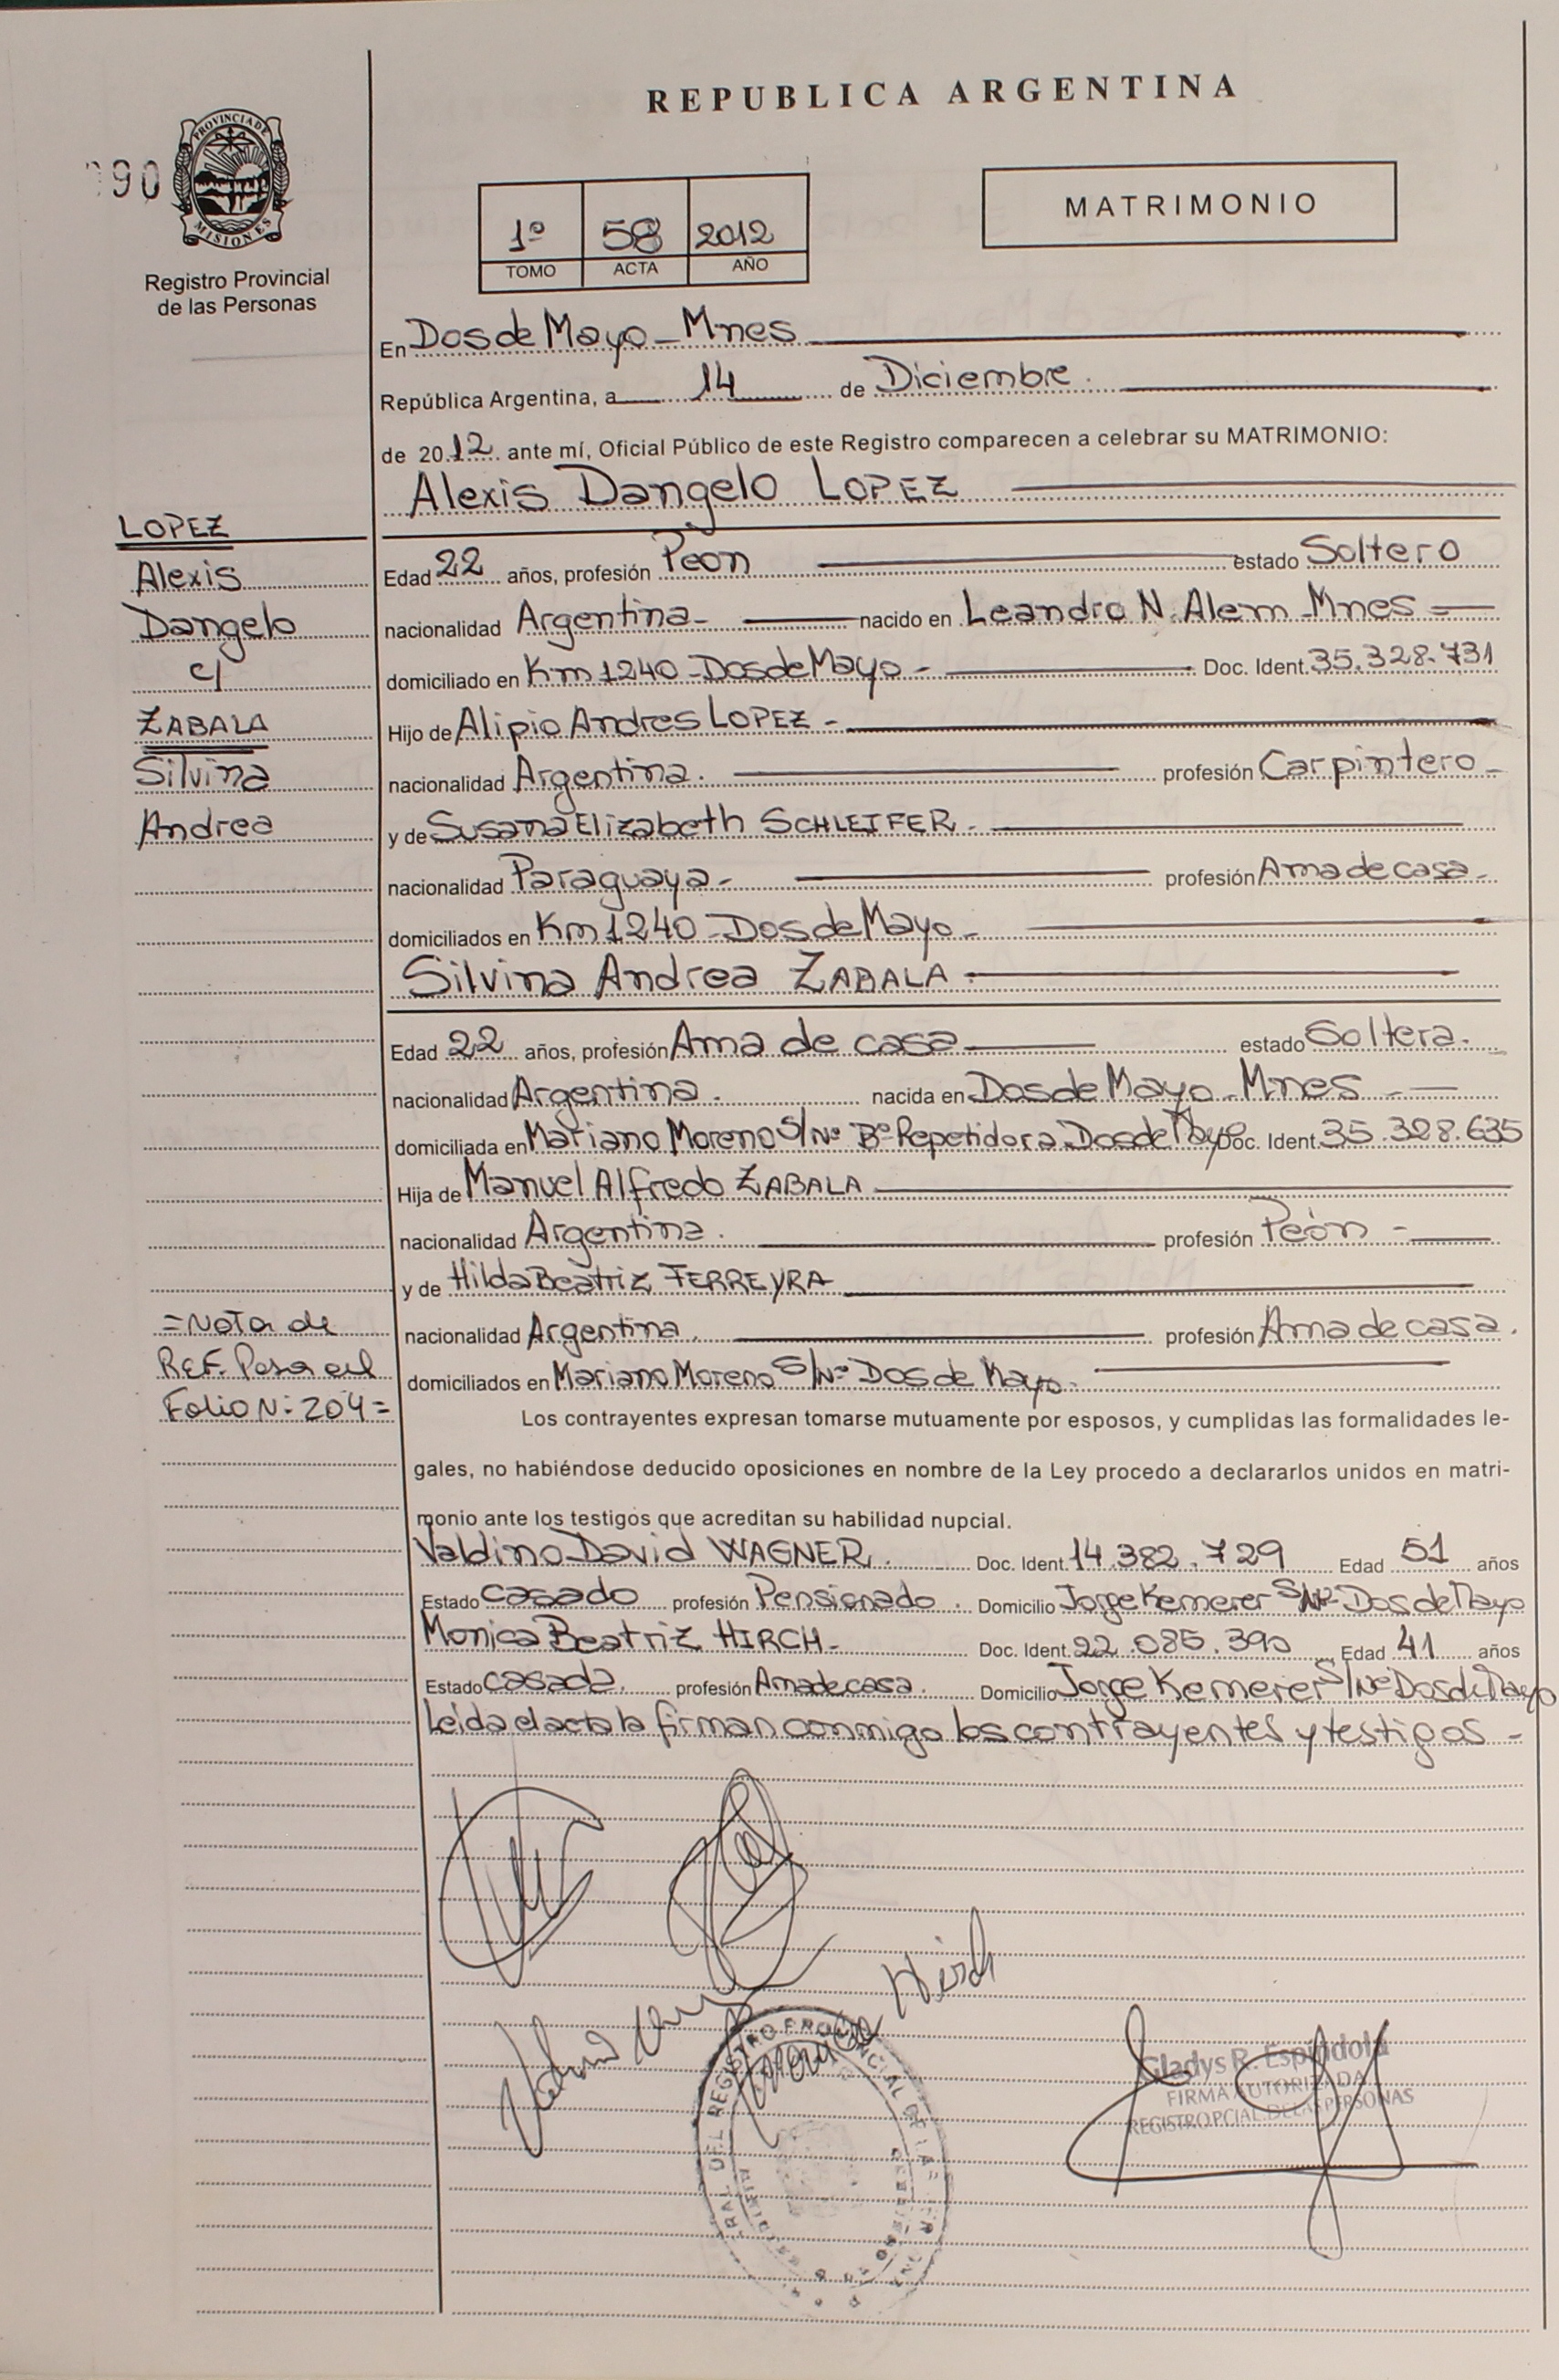 REPUBLICA ARGENTINA
PROVINCIA DE
MISIONES
90
Registro Provincial
de las Personas
1º 58 2012
TOMO ACTA AÑO
MATRIMONIO
En Dos de Mayo - Mnes
República Argentina, a 14 de Diciembre.
de 2012 ante mí, Oficial Público de este Registro comparecen a celebrar su MATRIMONIO:
Alexis Dangelo LOPEZ
LOPEZ
Alexis
Dangelo
c/
ZABALA
Silvina
Andrea
Edad 22 años, profesión Peon estado Soltero
nacionalidad Argentina- nacido en Leandro N. Alem - Mnes
domiciliado en Km 1240 - Dos de Mayo - Doc. Ident. 35.328.731
Hijo de Alipio Andres LOPEZ -
nacionalidad Argentina. profesión Carpintero -
y de Susana Elizabeth SCHLEIFER -
nacionalidad Paraguaya - profesión Ama de casa -
domiciliados en Km 1240 - Dos de Mayo -
Silvina Andrea ZABALA -
Edad 22 años, profesión Ama de casa estado Soltera.
nacionalidad Argentina. nacida en Dos de Mayo - Mnes -
domiciliada en Mariano Moreno S/Nº Bº Repetidora Dos de Mayo Doc. Ident. 35.328.635
Hija de Manuel Alfredo ZABALA
nacionalidad Argentina. profesión Peón -
y de Hilda Beatriz FERREYRA
nacionalidad Argentina. profesión Ama de casa.
domiciliados en Mariano Moreno S/Nº Dos de Mayo -
=Nota de
REF. Pasa al
Folio N: 204=
Los contrayentes expresan tomarse mutuamente por esposos, y cumplidas las formalidades le-
gales, no habiéndose deducido oposiciones en nombre de la Ley procedo a declararlos unidos en matri-
monio ante los testigos que acreditan su habilidad nupcial.
Valdino David WAGNER. Doc. Ident. 14.382.729 Edad 51 años
Estado casado profesión Pensionado. Domicilio Jorge Kemerer S/Nº Dos de Mayo
Monica Beatriz HIRCH - Doc. Ident. 22.085.390 Edad 41 años
Estado casada. profesión Ama de casa. Domicilio Jorge Kemerer S/Nº Dos de Mayo
Leida el acta la firman conmigo los contrayentes y testigos -
Monica Hirch
Gladys R. Espindola
FIRMA AUTORIZADA
REGISTRO PCIAL. DE LAS PERSONAS
DEL REGISTRO PROVINCIAL DE LAS